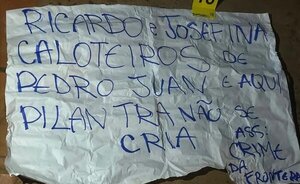 RICARDO E JOSEFINA
CALOTEIROS DE
PEDRO JUAN E AQUI
PILANTRA NÃO SE
CRIA
ASS:
CRIME
DA
FRONTEIRA